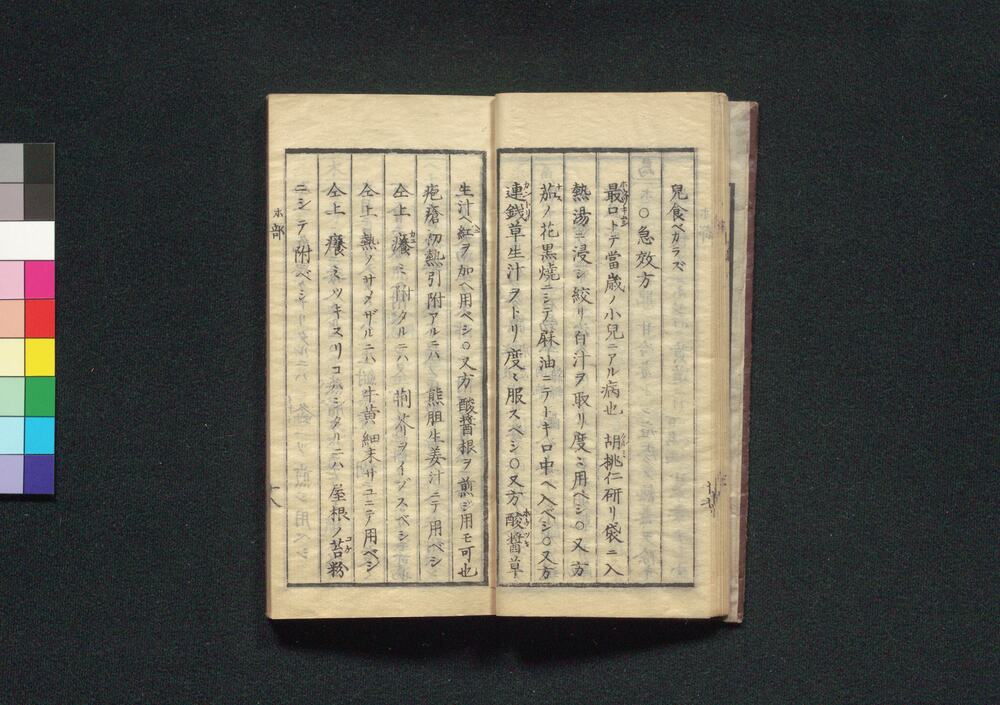 兒食ベカラズ
○急效方
最口トテ當歳ノ小兒ニアル病也 胡桃仁研リ袋ニ入
熱湯ニ浸シ絞リ白汁ヲ取リ度ミ用ベシ○又方
茄ノ花黒燒ニシテ麻油ニテトキ口中ヘ入ベシ○又方
連錢草生汁ヲトリ度ミ服スベシ○又方酸醬草
生汁ヘ紅ヲ加ヘ用ベシ○又方酸醬根ヲ煎ジ用モ可也
疱瘡初熱引附アルニハ 熊胆生姜汁ニテ用ベシ
仝上 癢ミ附タルニハ 荊芥ヲイブスベシ
仝上 熱ノサメザルニハ 牛黄細末サユニテ用ベシ
仝上 癢ミツキスリコハシタルニハ 屋根ノ苔粉
ニシテ附ベシ
ホ部